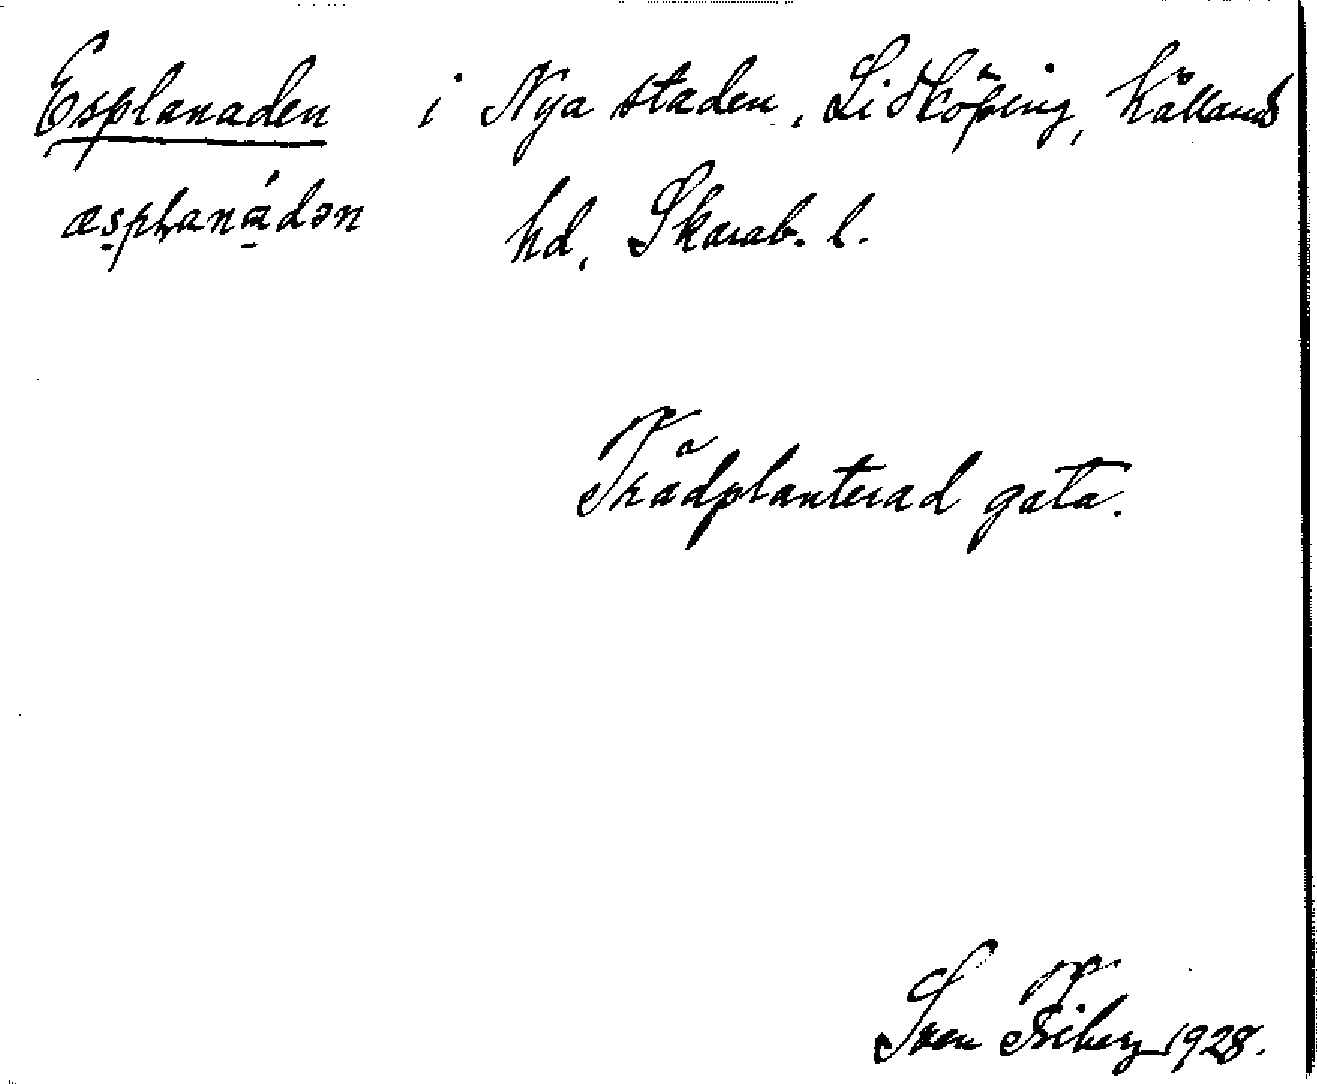 Esplanaden i Nya staden, Lidköping, Kållands
æsplanádən hd, Skarab. l.
Trädplanterad gata.
Sven Friberg 1928.